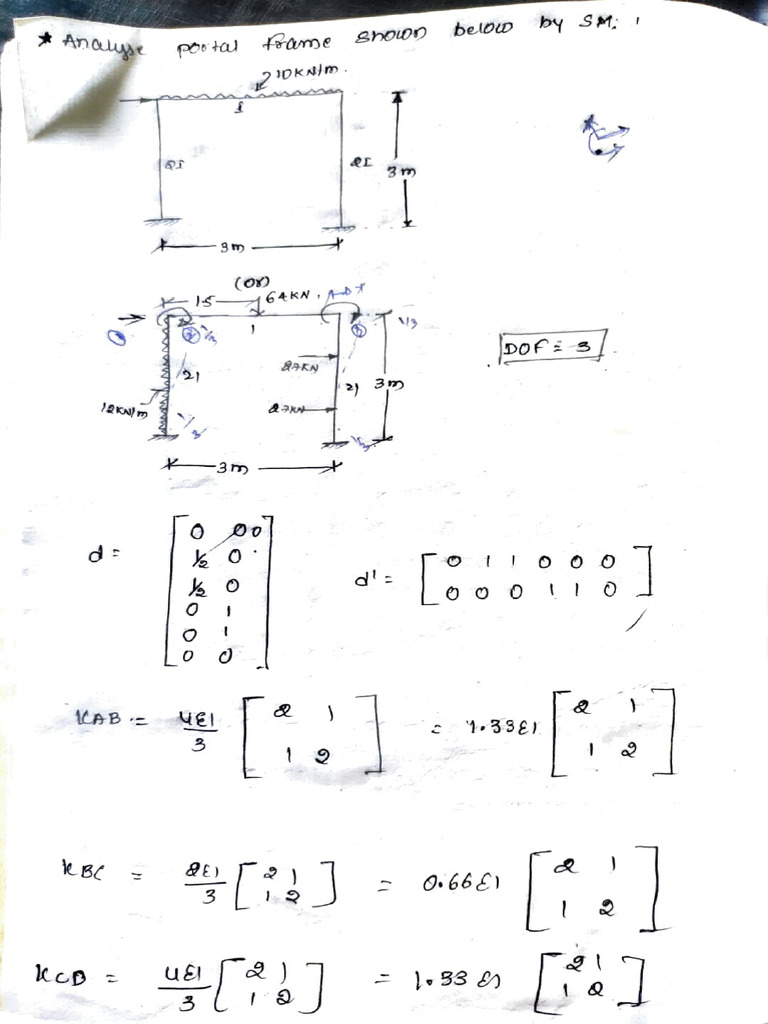 * Analyse portal frame shown below by SM:
10KN/m.
I
2I
2I
3m
3m
(or)
1.5
64KN.
1
1/3
1/3
DOF = 3
27KN
21
21
3m
12KN/m
27KN
1/3
1/3
3m
d =
[ 0 00
1/2 0
1/2 0
0 1
0 1
0 0 ]
d' =
[ 0 1 1 0 0 0
0 0 0 1 1 0 ]
KAB = 4E1/3 [ 2 1
1 2 ] = 1.33E1 [ 2 1
1 2 ]
KBC = 2E1/3 [ 2 1
1 2 ] = 0.66E1 [ 2 1
1 2 ]
KCD = 4E1/3 [ 2 1
1 2 ] = 1.33E1 [ 2 1
1 2 ]